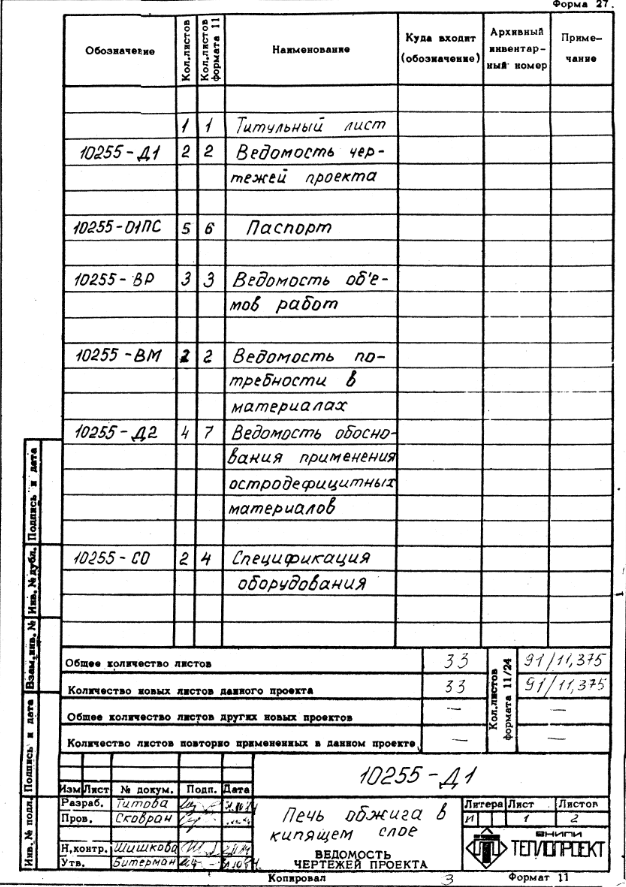 Форма 27.
Обозначение Кол.листов Кол.листов формата 11 Наименование Куда входит (обозначение) Архивный инвентар-ный номер Приме-чание
1 1 Титульный лист
10255-Д1 2 2 Ведомость чер-
тежей проекта
10255-01ПС 5 6 Паспорт
10255-ВР 3 3 Ведомость объе-
мов работ
10255-ВМ 2 2 Ведомость по-
требности в
материалах
10255-Д2 4 7 Ведомость обосно-
вания применения
остродефицитных
материалов
10255-СО 2 4 Спецификация
оборудования
Общее количество листов 33 91/11,375
Количество новых листов данного проекта 33 91/11,375
Общее количество листов других новых проектов —
Количество листов повторно примененных в данном проекте — —
Кол.листов формата 11/24
10255-Д1
Изм Лист № докум. Подп. Дата
Разраб. Титова
Пров. Сковран
Н.контр. Шишкова
Утв. Битерман
Печь обжига в
кипящем слое
ВЕДОМОСТЬ
ЧЕРТЕЖЕЙ ПРОЕКТА
Литера Лист Листов
И 1 2
ВНИПИ
ТЕПЛОПРОЕКТ
Копировал 3 Формат 11
Инв. № подл. Подпись и дата Взам. инв. № Инв. № дубл. Подпись и дата